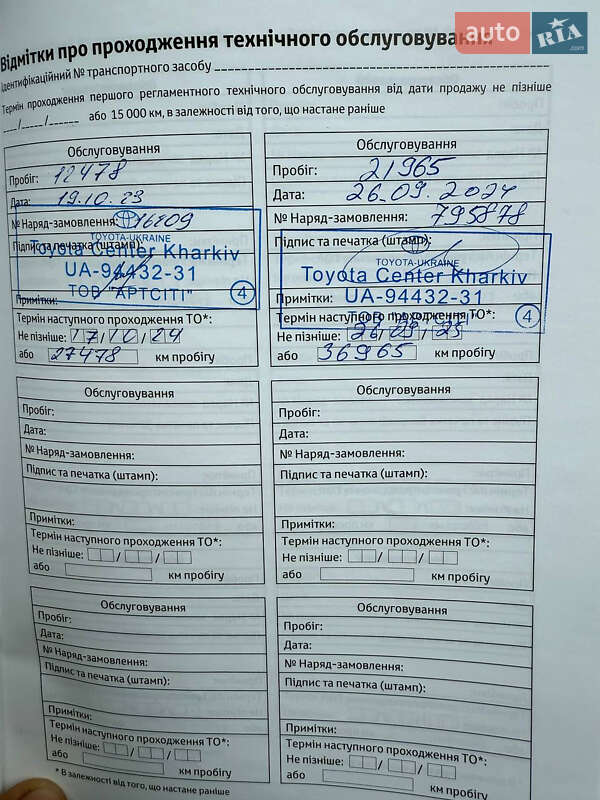 auto RIA .com
Відмітки про проходження технічного обслуговування
Ідентифікаційний № транспортного засобу
Термін проходження першого регламентного технічного обслуговування від дати продажу не пізніше
___/____/______ або 15 000 км, в залежності від того, що настане раніше
Обслуговування
Пробіг: 12478
Дата: 19.10.23
№ Наряд-замовлення: 16809
Підпис та печатка (штамп):
TOYOTA-UKRAINE
Toyota Center Kharkiv
UA-94432-31
ТОВ "АРТСІТІ" 4
Примітки:
Термін наступного проходження ТО*:
Не пізніше: 17/10/24
або 27478 км пробігу
Обслуговування
Пробіг: 21965
Дата: 26.09.2024
№ Наряд-замовлення: 795878
Підпис та печатка (штамп):
TOYOTA-UKRAINE
Toyota Center Kharkiv
Примітки: UA-94432-31
4
Термін наступного проходження ТО*:
Не пізніше: 26/09/25
або 36965 км пробігу
Обслуговування
Пробіг:
Дата:
№ Наряд-замовлення:
Підпис та печатка (штамп):
Примітки:
Термін наступного проходження ТО*:
Не пізніше: / /
або км пробігу
Обслуговування
Пробіг:
Дата:
№ Наряд-замовлення:
Підпис та печатка (штамп):
Примітки:
Термін наступного проходження ТО*:
Не пізніше: / /
або км пробігу
Обслуговування
Пробіг:
Дата:
№ Наряд-замовлення:
Підпис та печатка (штамп):
Примітки:
Термін наступного проходження ТО*:
Не пізніше: / /
або км пробігу
Обслуговування
Пробіг:
Дата:
№ Наряд-замовлення:
Підпис та печатка (штамп):
Примітки:
Термін наступного проходження ТО*:
Не пізніше: / /
або км пробігу
* В залежності від того, що настане раніше